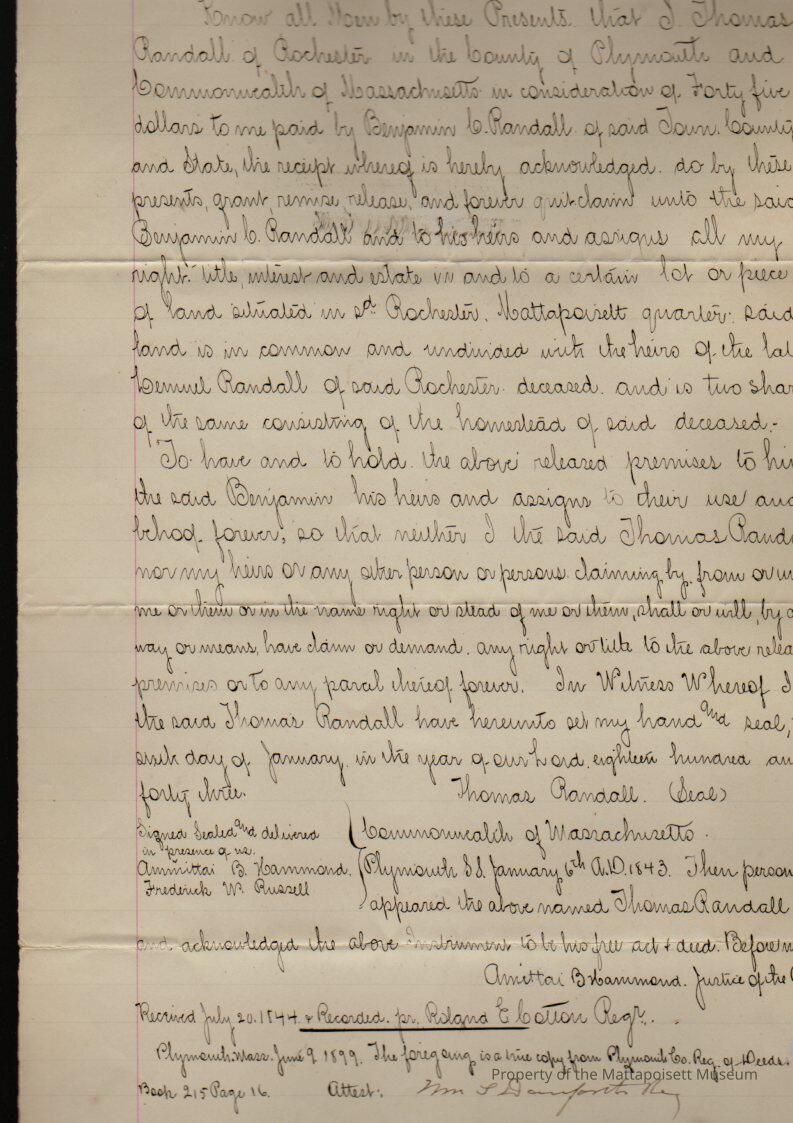 Know all Men by these Presents that I Thomas
Randall of Rochester in the County of Plymouth and
Commonwealth of Massachusetts in consideration of Forty five
dollars to me paid by Benjamin C. Randall of said Town. County
and State, the receipt whereof is hereby acknowledged. do by these
presents, grant, remise, release, and forever quitclaim unto the said
Benjamin C. Randall and to his heirs and assigns all my
right, title, interest and estate in and to a certain lot or piece
of land situated in sd. Rochester, Mattapoisett quarter. said
land is in common and undivided with the heirs of the lat
Lemuel Randall of said Rochester deceased. and is two shar
of the same consisting of the homestead of said deceased.-
To have and to hold. the above released premises to hi
the said Benjamin his heirs and assigns to their use and
behoof forever; so that neither I the said Thomas Rand
nor my heirs or any other person or persons claiming by, from or un
me or them or in the name right or stead of me or them, shall or will, by
way or means, have claim or demand, any right or title to the above relea
premises or to any parcel thereof forever. In Witness Whereof I
the said Thomas Randall have hereunto set my hand and seal,
sixth day of January, in the year of our Lord, eighteen hundred an
forty three. Thomas Randall. (Seal)
Signed Sealed and delivered
in presence of us.
Amittai B. Hammond.
Frederick W. Russell
Commonwealth of Massachusetts.
Plymouth SS. January 6th A.D. 1843. Then person
appeared the above named Thomas Randall
and acknowledged the above Instrument to be his free act & deed. Before m
Amittai B Hammond. Justice of the
Received July 20. 1844. & Recorded. pr. Roland E Cotton Regr.
Plymouth. Mass. June 9. 1899. The foregoing is a true copy from Plymouth Co. Reg. of Deeds.
Book 215 Page 16. Attest: Wm S Danforth Reg
Property of the Mattapoisett Museum